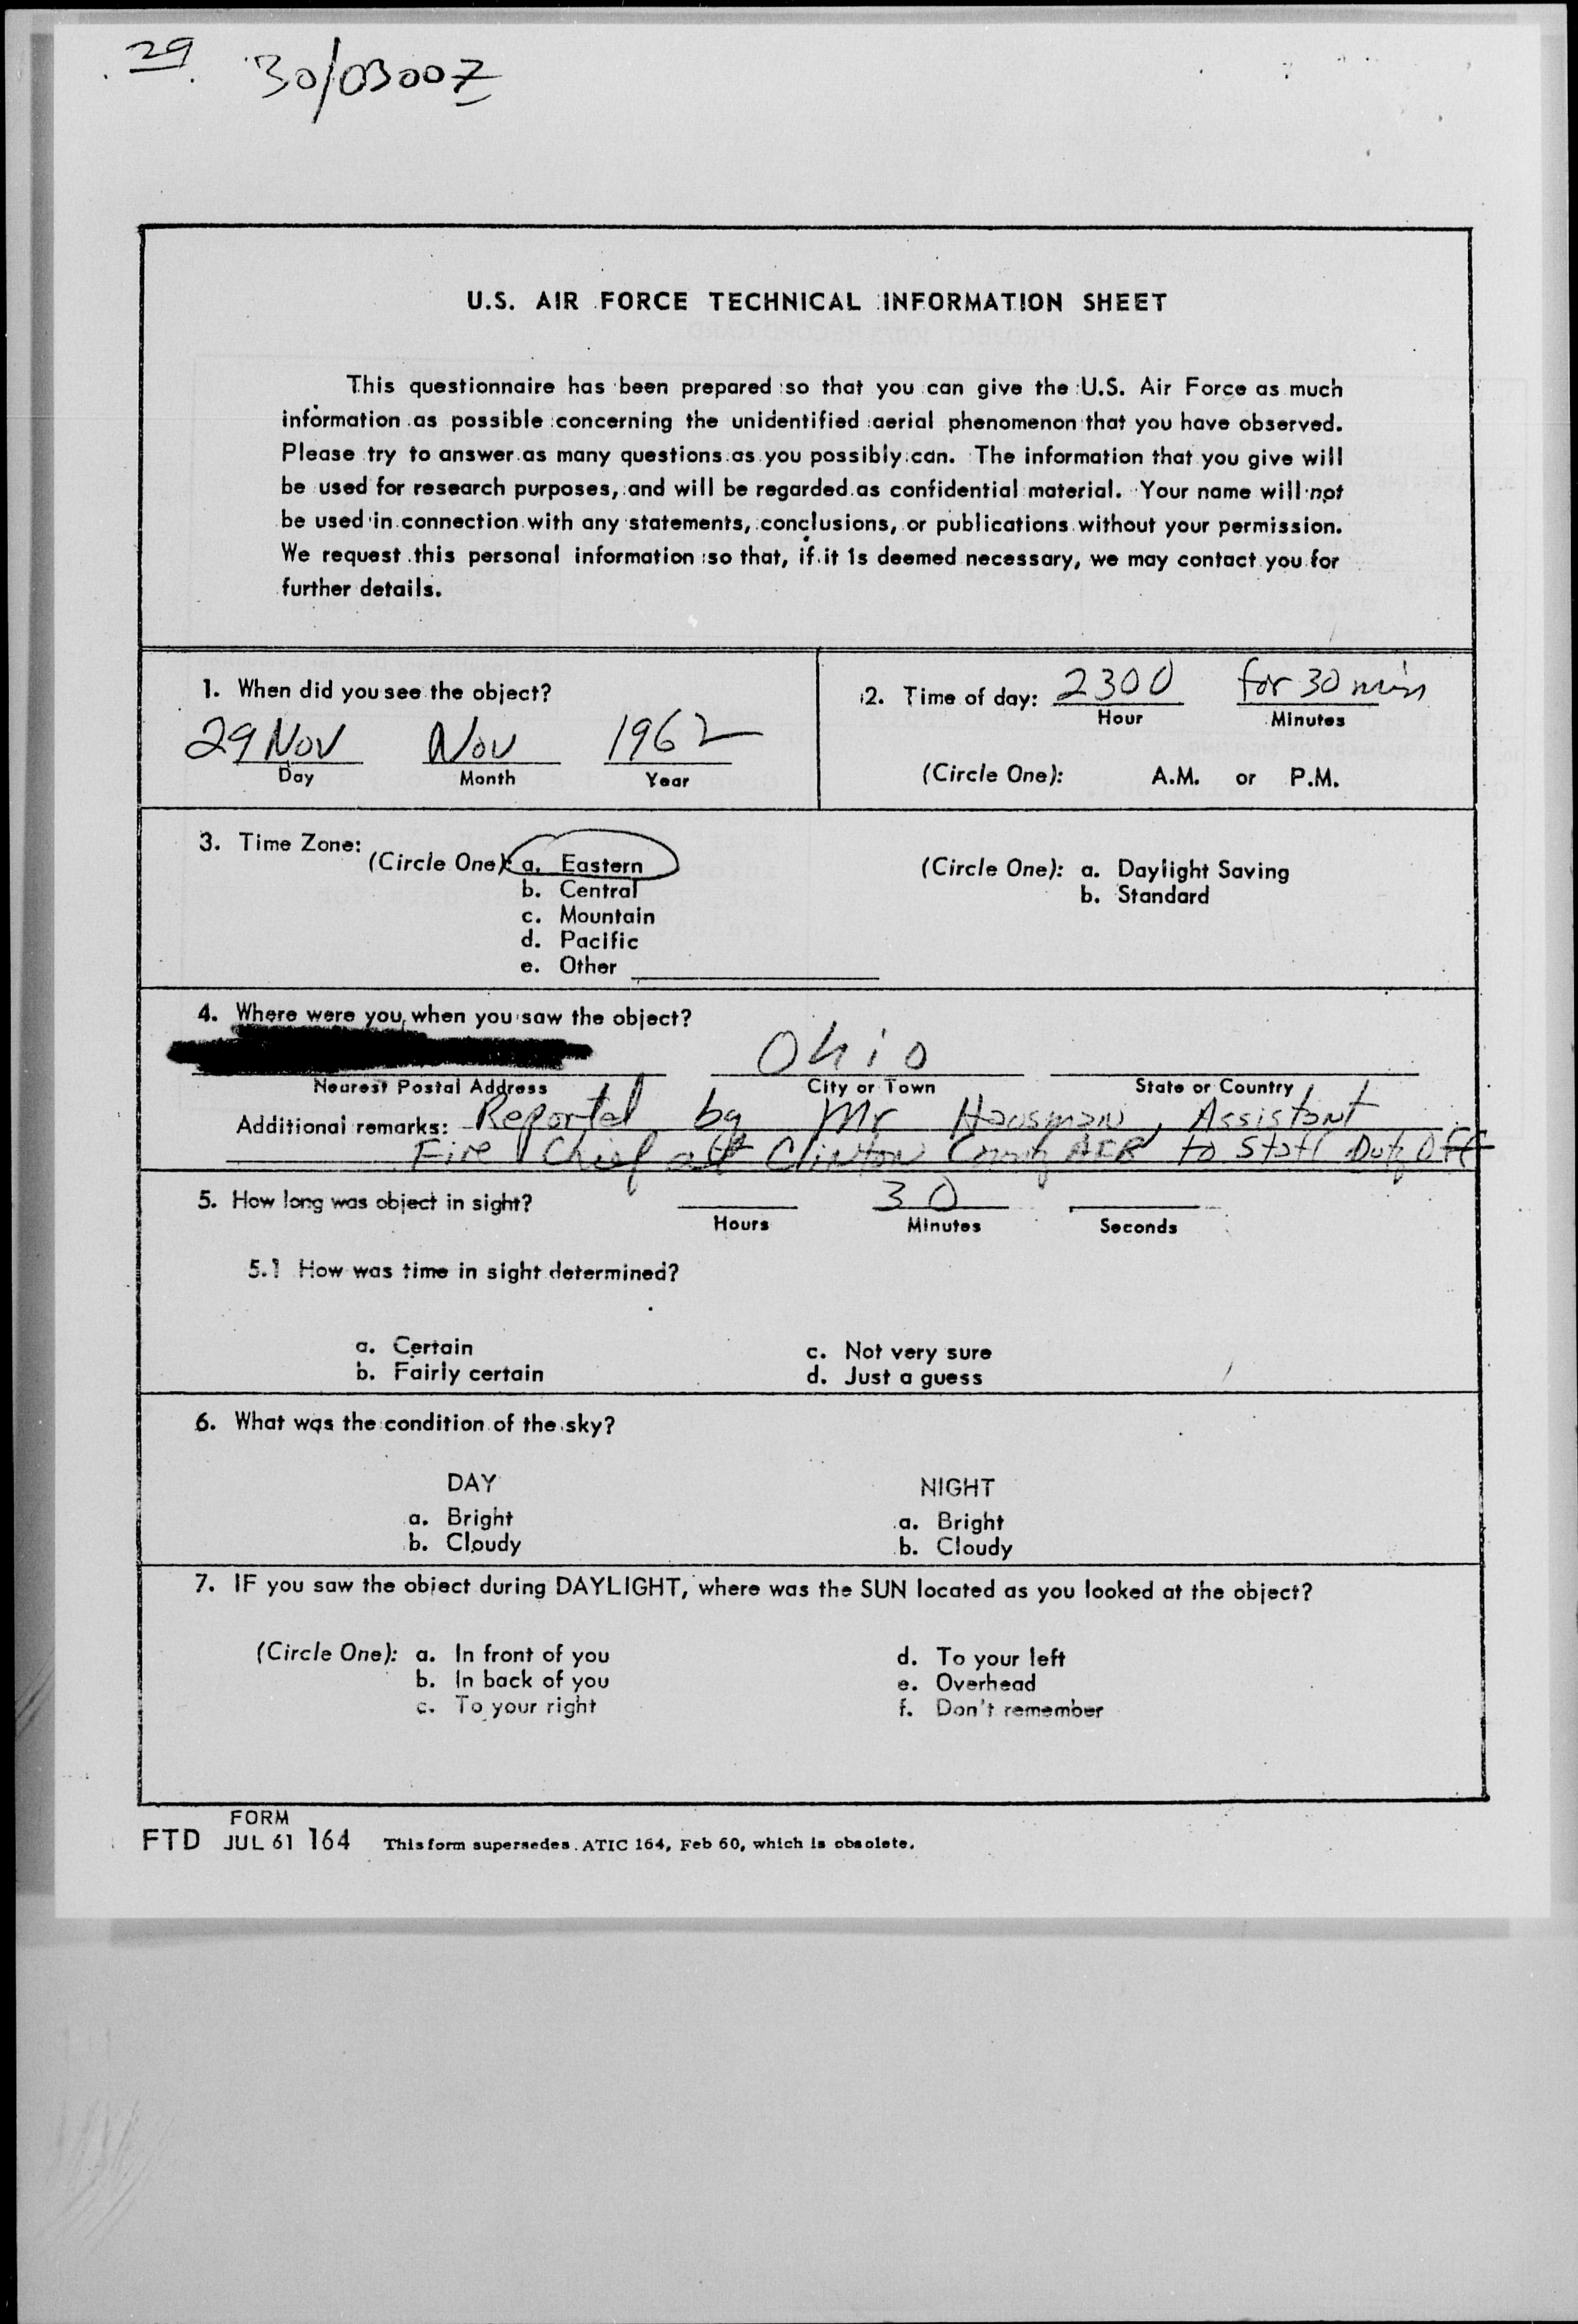 29 30/0300Z
U.S. AIR FORCE TECHNICAL INFORMATION SHEET
This questionnaire has been prepared so that you can give the U.S. Air Force as much
information as possible concerning the unidentified aerial phenomenon that you have observed.
Please try to answer as many questions as you possibly can. The information that you give will
be used for research purposes, and will be regarded as confidential material. Your name will not
be used in connection with any statements, conclusions, or publications without your permission.
We request this personal information so that, if it is deemed necessary, we may contact you for
further details.
1. When did you see the object?
29 Nov Nov 1962
Day Month Year
2. Time of day: 2300 for 30 min
Hour Minutes
(Circle One): A.M. or P.M.
3. Time Zone:
(Circle One): a. Eastern
b. Central
c. Mountain
d. Pacific
e. Other
(Circle One): a. Daylight Saving
b. Standard
4. Where were you when you saw the object?
Ohio
Nearest Postal Address City or Town State or Country
Additional remarks: Reported by Mr Hausman, Assistant
Fire Chief at Clinton County AFB to Staff Duty Off
5. How long was object in sight? 30
Hours Minutes Seconds
5.1 How was time in sight determined?
a. Certain
b. Fairly certain
c. Not very sure
d. Just a guess
6. What was the condition of the sky?
DAY
a. Bright
b. Cloudy
NIGHT
a. Bright
b. Cloudy
7. IF you saw the object during DAYLIGHT, where was the SUN located as you looked at the object?
(Circle One): a. In front of you
b. In back of you
c. To your right
d. To your left
e. Overhead
f. Don't remember
FORM
FTD JUL 61 164 This form supersedes ATIC 164, Feb 60, which is obsolete.